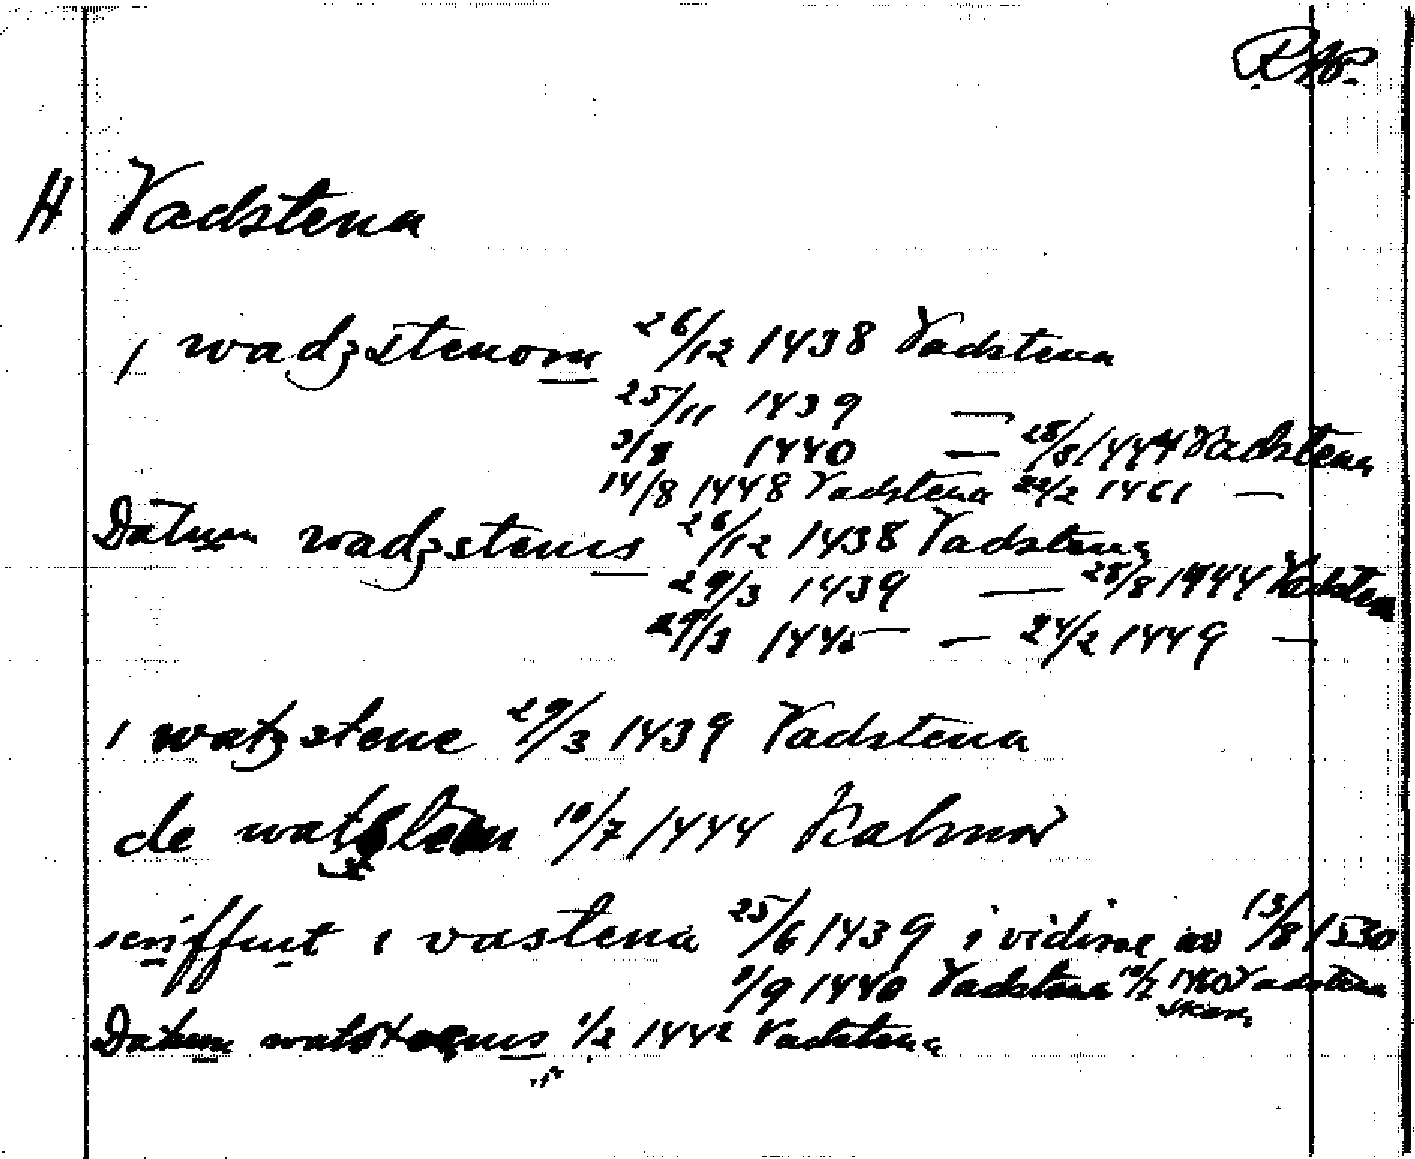 RAP.
H Vadstena
i wadzstenom 26/12 1438 Vadstena
25/11 1439 —
3/8 1440 — 28/8 1444 Vadstena
14/8 1448 Vadstena 22/2 1461 —
Datum wadzstenis 26/12 1438 Vadstena
29/3 1439 — 28/8 1444 Vadstena
29/3 1445 — 24/2 1449 —
i watzstene 29/3 1439 Vadstena
de 10/7 1444 Kalmar
scriffuit i vastena 25/6 1439 i vidisse av 13/8 1530
1/9 1440 Vadstena 10/2 1460 Vadstena
Datum 1/2 1442 Vadstena